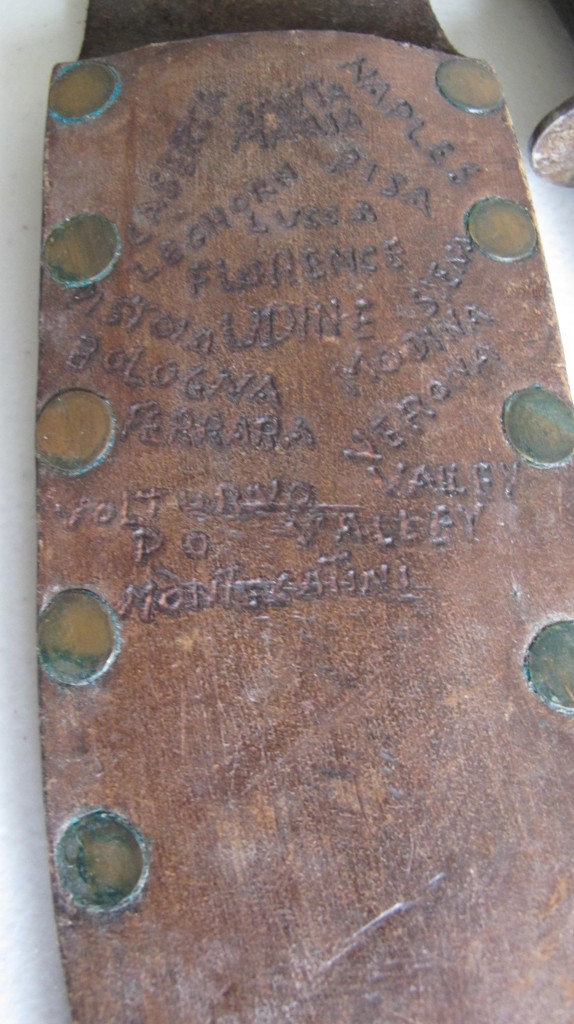 CASERTA SANTA MARIA NAPLES
LEGHORN PISA
LUSSA
FLORENCE SIENA
PISTOIA UDINE
BOLOGNA MODINA
FERRARA VERONA
VOLTURNO VALLEY
PO VALLEY
MONTECATINI